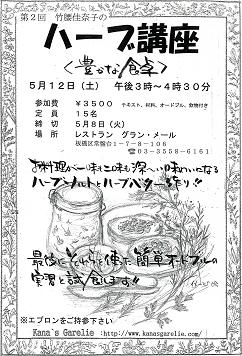 第2回 竹腰佳奈子の
ハーブ講座
〈豊かな食卓〉
5月12日（土） 午後3時～4時30分
参加費 ￥3500 テキスト、材料、オードブル、飲物付き
定員 15名
締切 5月8日（火）
場所 レストラン グラン・メール
板橋区常盤台1-7-8-106
☎03-3558-6161
お料理が一味も二味も深～い味わいになる
ハーブソルトとハーブバター作り!!
最後にそれらを使った簡単オードブルの
実習と試食します!!
※エプロンをご持参下さい
Kana's Garelie :http://www.kanasgarelie.com/